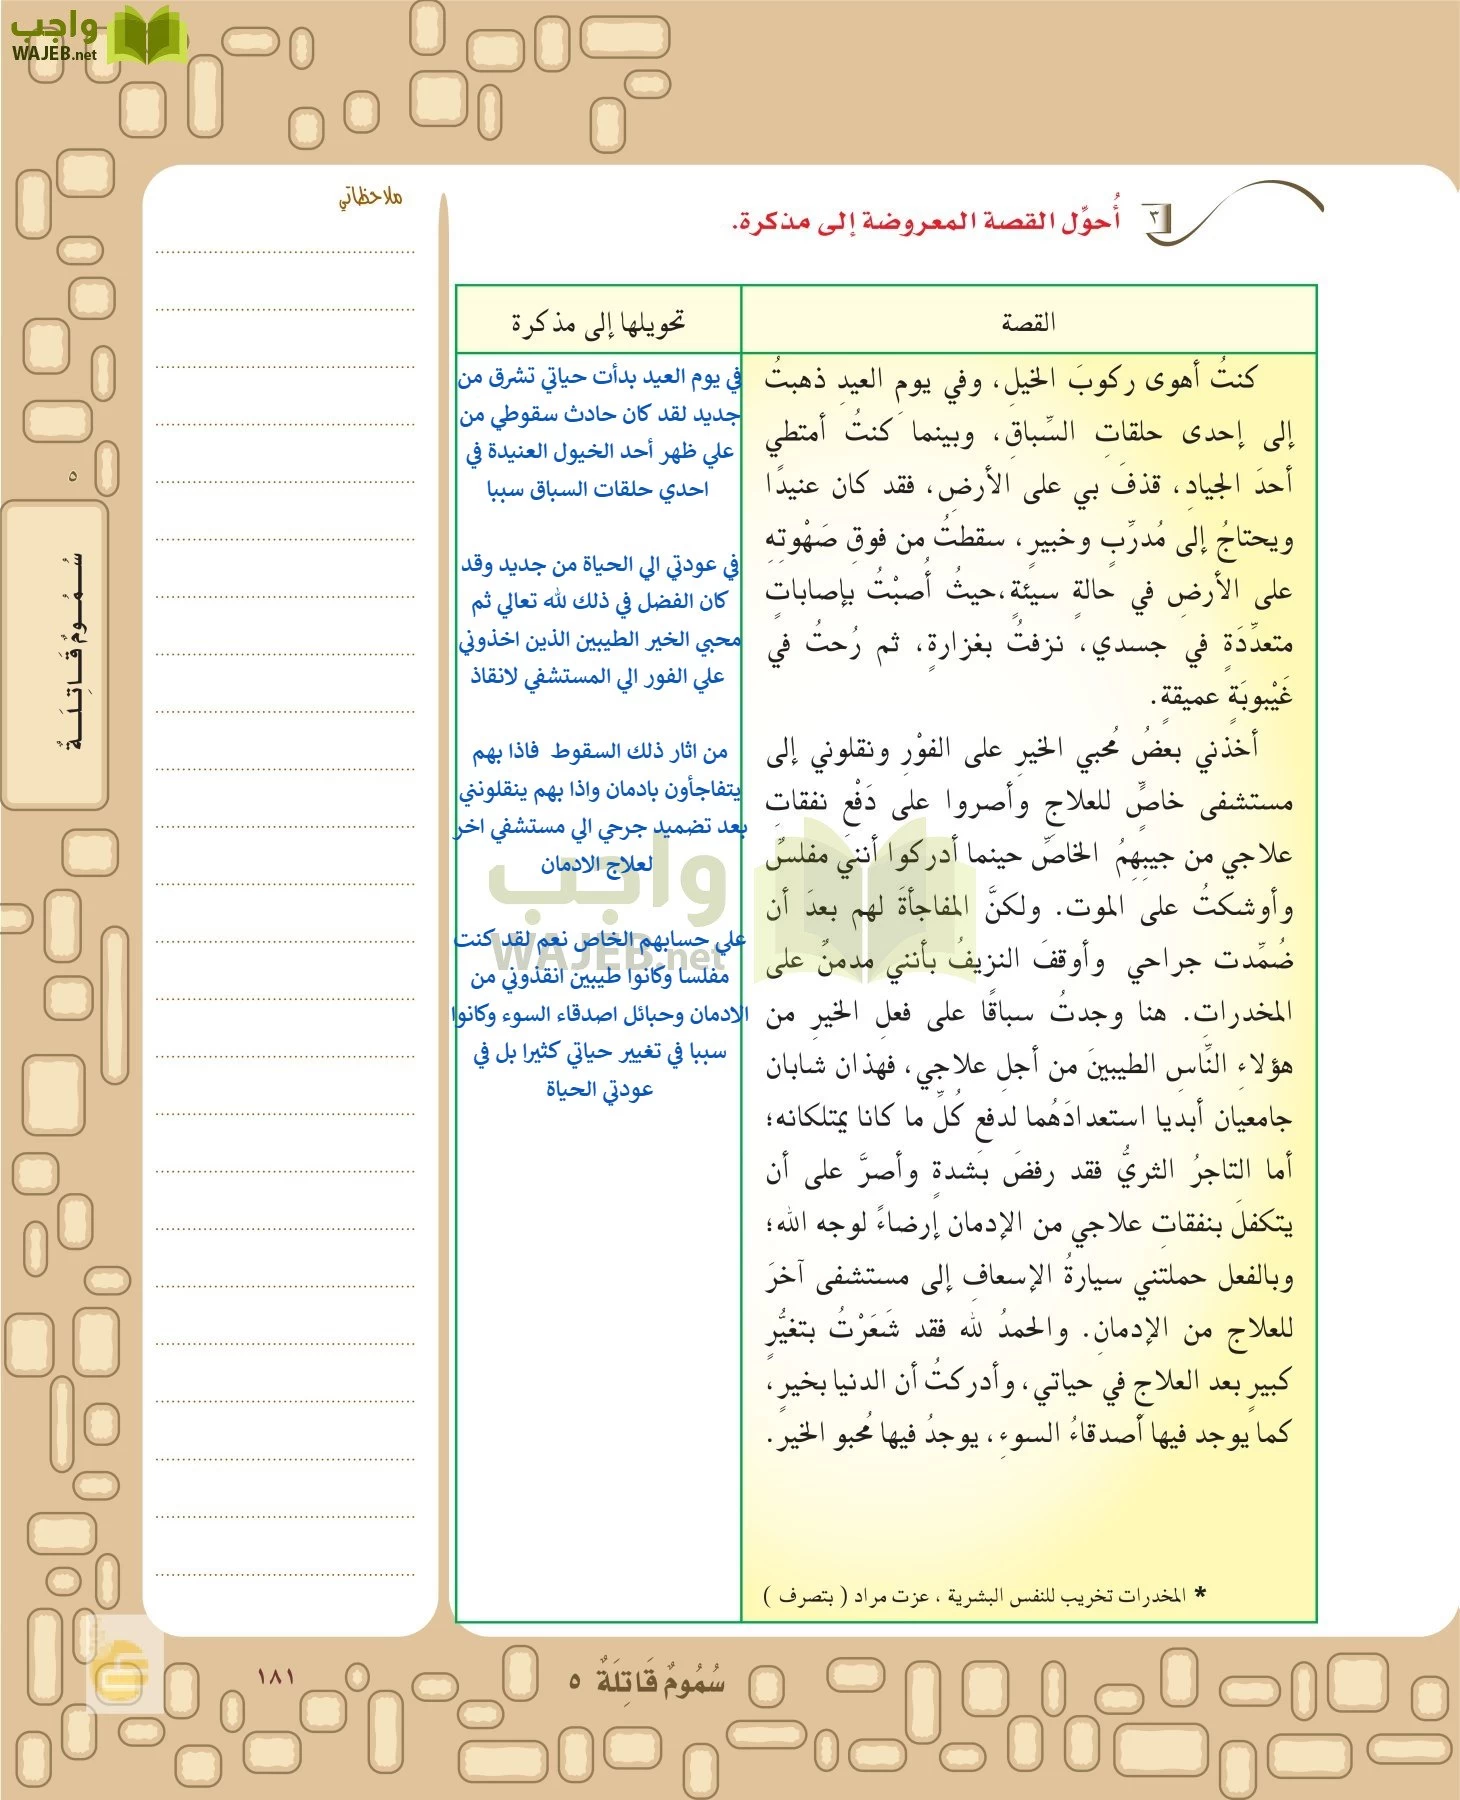 واجب
WAJEB.net
٣
أُحوِّل القصة المعروضة إلى مذكرة.
ملاحظاتي
القصة
كنتُ أهوى ركوبَ الخيلِ، وفي يومِ العيدِ ذهبتُ
إلى إحدى حلقاتِ السِّباقِ، وبينما كنتُ أمتطي
أحدَ الجيادِ، قذفَ بي على الأرضِ، فقد كان عنيدًا
ويحتاجُ إلى مُدرِّبٍ وخبيرٍ، سقطتُ من فوقِ صَهْوتِهِ
على الأرضِ في حالةٍ سيئةٍ،حيثُ أُصبْتُ بإصاباتٍ
متعدِّدَةٍ في جسدي، نزفتُ بغزارةٍ، ثم رُحتُ في
غَيْبوبَةٍ عميقةٍ.
أخذني بعضُ مُحبي الخيرِ على الفوْرِ ونقلوني إلى
مستشفى خاصٍّ للعلاجِ وأصروا على دَفْعِ نفقاتِ
علاجي من جيبِهِمُ الخاصِّ حينما أدركوا أننيَ مفلسٌ
وأوشكتُ على الموت. ولكنَّ المفاجأةَ لهم بعدَ أن
ضُمِّدت جراحي وأوقفَ النزيفُ بأنني مدمنٌ على
المخدراتِ. هنا وجدتُ سباقًا على فعلِ الخيرِ من
هؤلاءِ النَّاسِ الطيبينَ من أجلِ علاجي، فهذان شابان
جامعيان أبديا استعدادَهُما لدفعِ كُلِّ ما كانا يمتلكانه؛
أما التاجرُ الثريُّ فقد رفضَ بشدةٍ وأصرَّ على أن
يتكفلَ بنفقاتِ علاجي من الإدمان إرضاءً لوجه الله؛
وبالفعل حملتني سيارةُ الإسعافِ إلى مستشفى آخرَ
للعلاج من الإدمانِ. والحمدُ لله فقد شَعَرْتُ بتغيُّرٍ
كبيرٍ بعد العلاجِ في حياتي، وأدركتُ أن الدنيا بخيرٍ،
كما يوجد فيها أصدقاءُ السوءِ، يوجدُ فيها مُحبو الخير.
* المخدرات تخريب للنفس البشرية ، عزت مراد ( بتصرف )
تحويلها إلى مذكرة
في يوم العيد بدأت حياتي تشرق من
جديد لقد كان حادث سقوطي من
علي ظهر أحد الخيول العنيدة في
احدي حلقات السباق سببا
في عودتي الي الحياة من جديد وقد
كان الفضل في ذلك لله تعالي ثم
محبي الخير الطيبين الذين اخذوني
علي الفور الي المستشفي لانقاذ
من اثار ذلك السقوط فاذا بهم
يتفاجأون بادمان واذا بهم ينقلونني
بعد تضميد جرحي الي مستشفي اخر
لعلاج الادمان
علي حسابهم الخاص نعم لقد كنت
مفلسا وكانوا طيبين انقذوني من
الادمان وحبائل اصدقاء السوء وكانوا
سببا في تغيير حياتي كثيرا بل في
عودتي الحياة
واجب
WAJEB.net
٥
سُـمُـومٌ قَـاتِـلَـةٌ
سُمُومٌ قَاتِلَةٌ ٥
١٨١